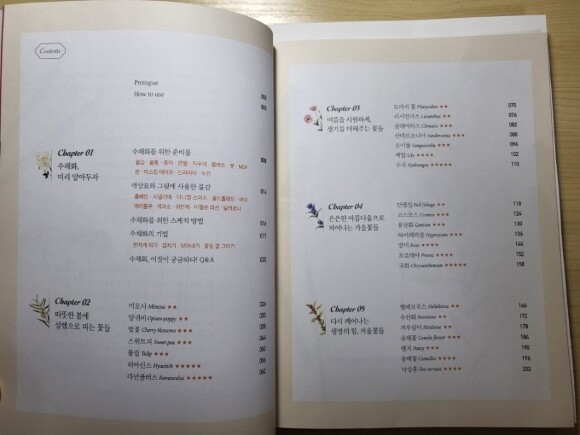 Contents
Prologue
How to use
Chapter 01
수채화,
미리 알아두자
수채화를 위한 준비물
물감 · 물통 · 종이 · 연필 · 지우개 · 팔레트 · 붓
색상표와 그림에 사용한 물감
수채화를 위한 스케치 방법
016
수채화의 기법
017
번지게 하기 · 겹치기 · 닦아내기 · 꽃잎 결 그리기
수채화, 이것이 궁금하다! Q&A
020
Chapter 02
따뜻한 봄에
살랑으로 피는 꽃들
미모사 Mimosa ★★
양귀비 Opium-poppy ★★
벚꽃 Cherry blossoms ★★★
스위트피 Sweet pea ★★★
튤립 Tulip ★★★
히아신스 Hyacinth ★★★★★
라넌큘러스 Ranunculus ★★★★★
Chapter 03
여름을 시원하게,
생기를 더해주는 꽃들
도라지 꽃 Platycodon ★★
070
리시안셔스 Lisianthus ★★
076
클레마티스 Clematis ★★★
082
산더소니아 Sandersonia ★★★
088
오이풀 Sanguisorba ★★★
094
백합 Lily ★★★★
102
수국 Hydrangea ★★★★★
110
Chapter 04
은은한 아름다움으로
피어나는 가을꽃들
단풍잎 Fall foliage ★★
118
코스모스 Cosmos ★★★
126
용담화 Gentian ★★★
130
하이페리쿰 Hypericum ★★★
136
장미 Rose ★★★★
144
프로테아 Protea ★★★★★
152
국화 Chrysanthemum ★★★★★
158
Chapter 05
다시 깨어나는
생명의 힘, 겨울꽃들
헬레보루스 Helleborus ★★
166
수선화 Narcissus ★★
172
겨우살이 Mistletoe ★★★
178
유채꽃 Canola flower ★★★
182
팬지 Pansy ★★★★
190
동백꽃 Camellia ★★★★
196
낙상홍 Ilex serrata ★★★★
202